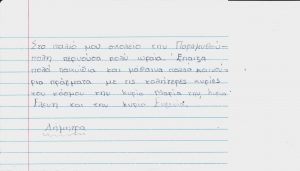 Στο παλιό μου σχολείο την Παραμυθού-
πολη περνούσα πολύ ωραία. Επαιζα
πολά παιχνίδια και μάθαινα πολλά καινού-
ρια πράγματα με τις καλήτερες κυρίες
του κόσμου την κυρία Μαρία την κυρία
Ελένη και την κυρία
Δήμητρα